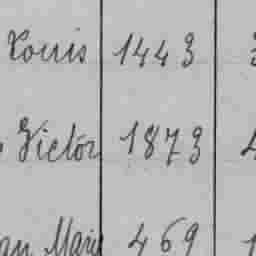 Louis 1443
Victor 1873
Marie 469